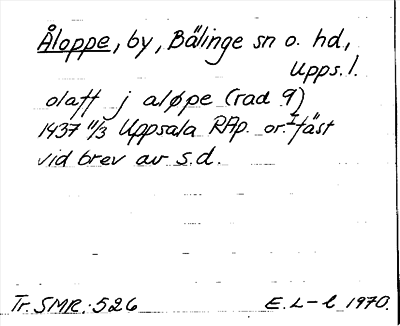 Åloppe, by, Bälinge sn o. hd,
Upps. l.
olaff j aløpe (rad 9)
1437 11/3 Uppsala RAp. or. I fäst
vid brev av s.d.
Tr. SMR. 526 E. L-l 1970.